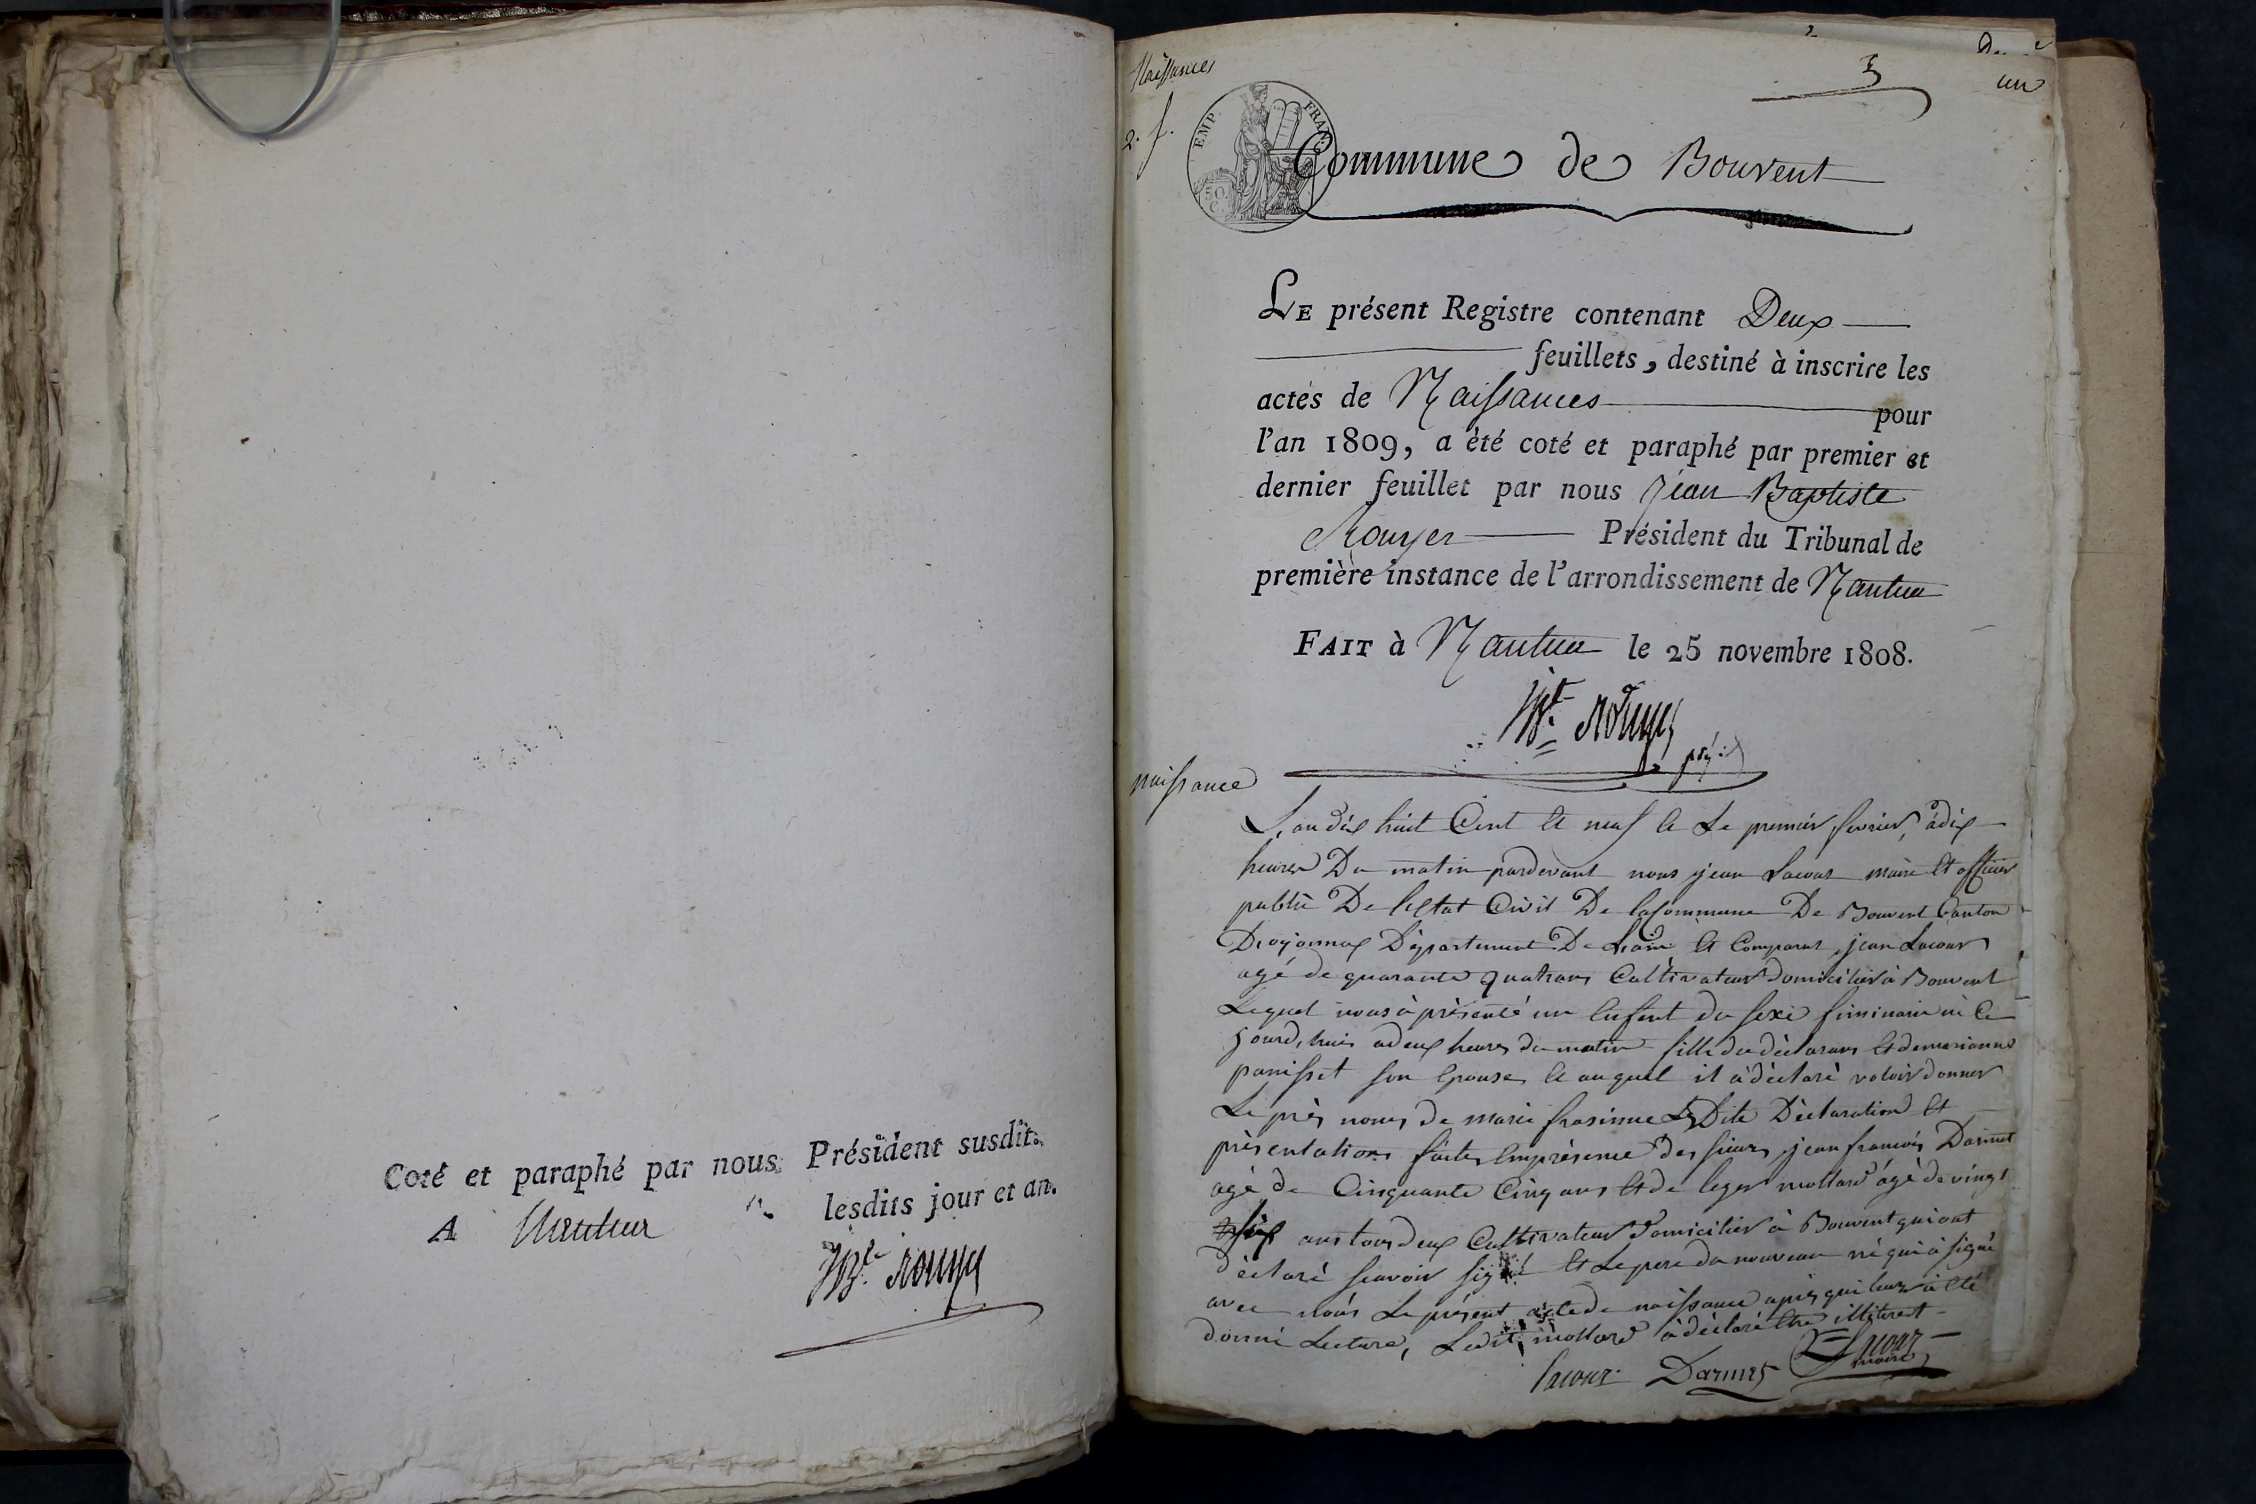 Coté et paraphé par nous Président susdit.
A Nantua lesdits jour et an.
JBte Rouyer
Naissances
2. f.
3
un
EMP. FRAN.
50 C.
Commune de Bouvent
LE présent Registre contenant Deux
feuillets, destiné à inscrire les
actes de Naissances pour
l'an 1809, a été coté et paraphé par premier et
dernier feuillet par nous Jean Baptiste
Rouyer Président du Tribunal de
première instance de l'arrondissement de Nantua
FAIT à Nantua le 25 novembre 1808.
JBte Rouyer
présid
naissance
L'an dix huit Cent et neuf et Le premier fevrier, à dix
heures Du matin pardevant nous jean Lacour maire Et officier
public De l'Etat Civil De la Commune De Bouvent Canton
D'oyonnax Département De L'ain Et Comparus jean Lacour
agé de quarante quatrans Cultivateur domicilier à Bouvent
Lequel nous à présenté un Enfent du sexe fiminain né Ce
jourd'huis a deux heures du matin fille du déclarans Et de marianne
panisset son Epouse Et auquel il à déclaré voloir donner
Le prés noms de marie frasinne Les Dite Déclaration Et
présentation faites En présence des sieurs jean francois Darmet
agé de Cinquante Cinq ans Et de leger mollard âgé de vingt
six ans tous deux Cultivateur domicilier à Bouvent qui ont
déclaré scavoir signé Et Le pere du nouveau né qui à signé
avec nous Le présent acte de naissance apres qui leur à Eté
donné Lecture, Ledit mollard à déclaré Etre illiteret
lacour Darmet Lacour
maire